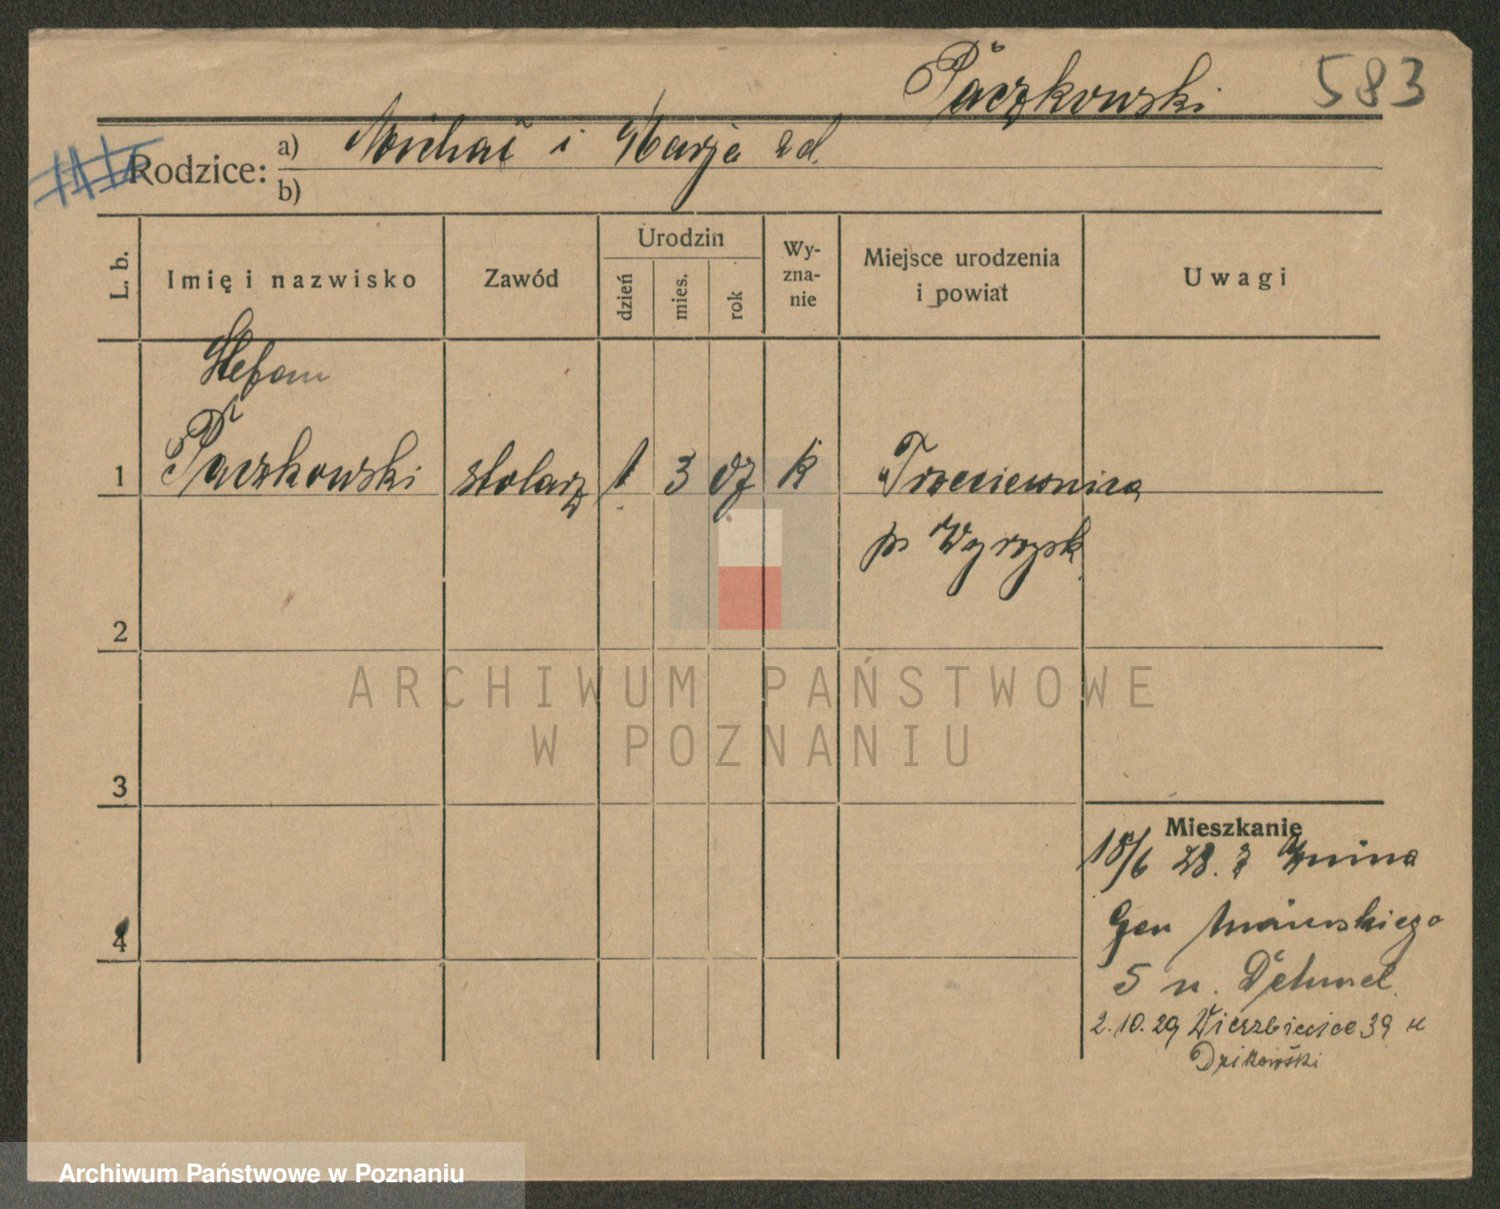 Paczkowski 583
Rodzice: a) Michał i Marja
b)
L. b. Imię i nazwisko Zawód Urodzin dzień mies. rok Wy-zna-nie Miejsce urodzenia i powiat Uwagi
Stefan
1 Paczkowski stolarz 1 3 07 k Trzeciewnica
p. Wyrzysk
2
ARCHIWUM PAŃSTWOWE
W POZNANIU
3
Mieszkanie
18/6 28. z Żnina
4 Gen
5 u.
2.10.29 Wierzbięcice 39 u
Dzikowski
Archiwum Państwowe w Poznaniu